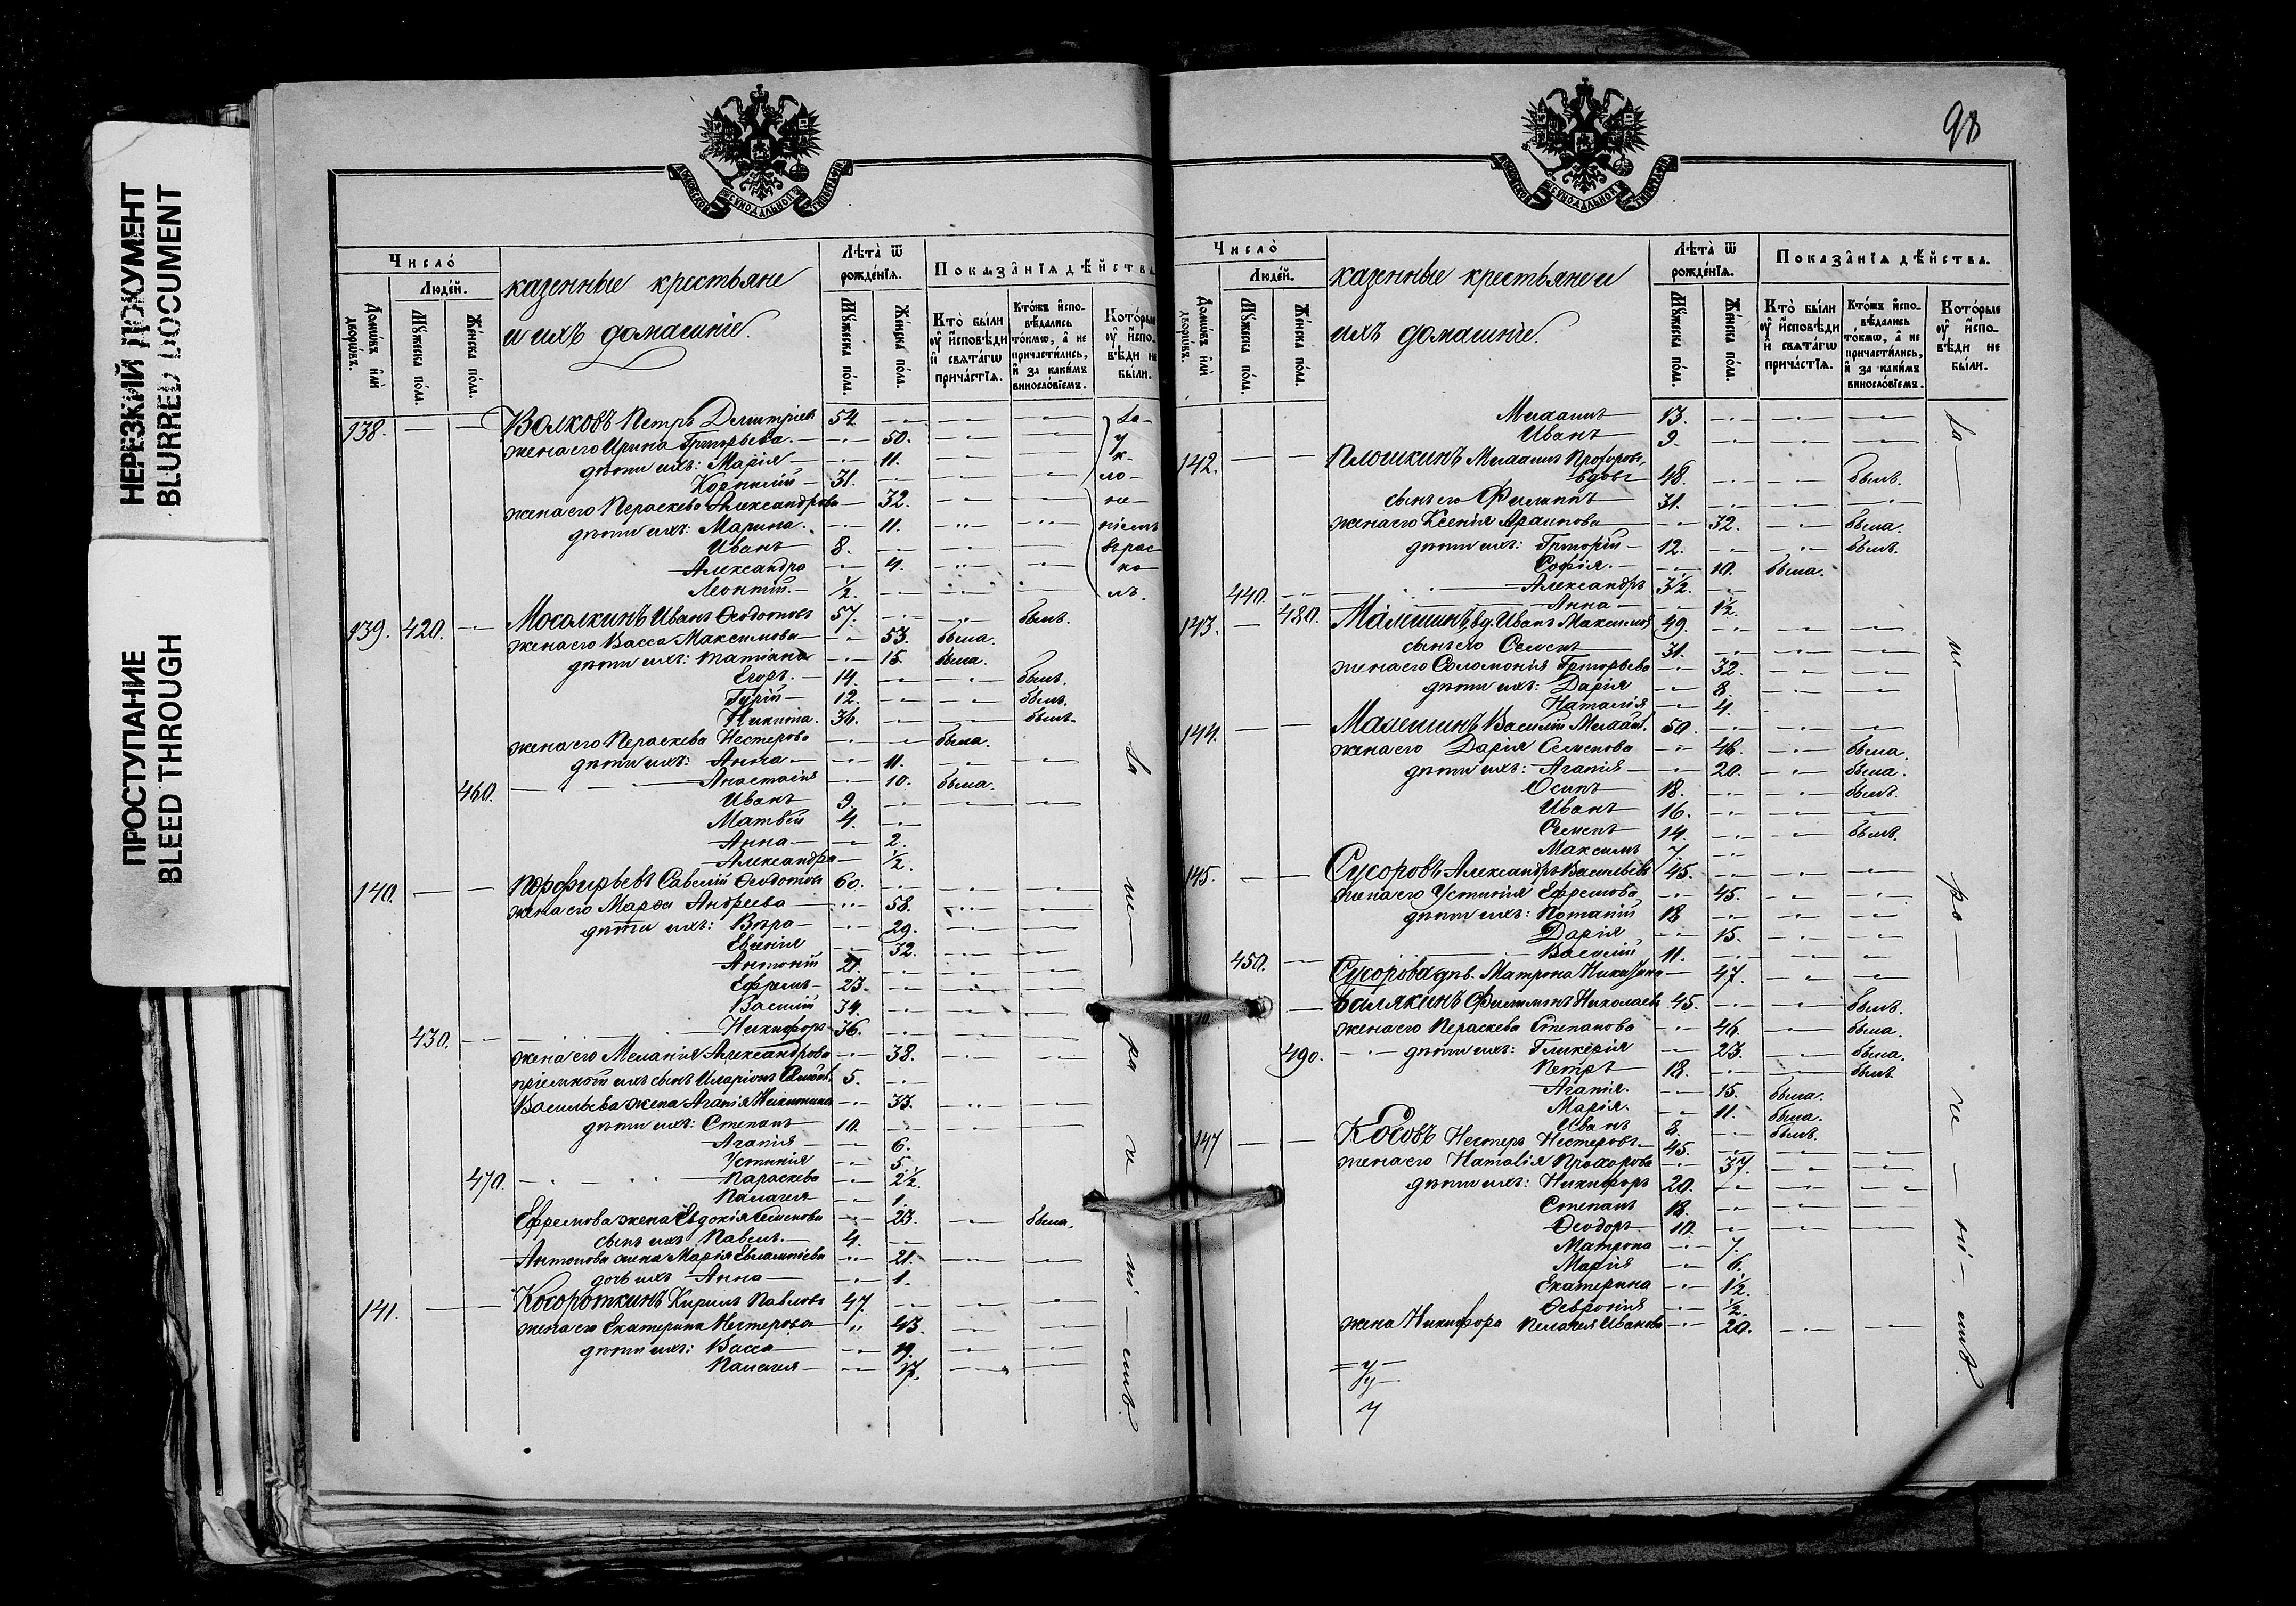 НЕРЕЗКИЙ ДОКУМЕНТ
BLURRED DOCUMENT
ПРОСТУПАНИЕ
BLEED THROUGH
МОСКОВСКОЙ СѴНОДАЛЬНОЙ ТИПОГРАФІИ
Число̀
Люде́й.
Домѡ́въ и҆лѝ дворѡ́въ.
Мꙋ́жеска по́ла.
Же́нска по́ла.
казенные крестьяне
и ихъ домашніе.
Лѣта̀ ѿ рожде́нїѧ.
Мꙋ́жеска по́ла.
Же́нска по́ла.
Показа̑нїѧ дѣ́йства
Кто̀ бы́ли ᲂу҆ и҆сповѣ́ди и҆ свѧта́гѡ прича́стїѧ.
Кто́жъ и҆сповѣ́дались то́кмѡ, а҆ не причасти́лись, и҆ за каки́мъ виносло́вїемъ.
Кото́рые ᲂу҆ и҆сповѣ́ди не бы́ли.
138. Волковъ Петръ Дмитріевъ 54.
жена его Ирина Григорьева. 50.
дѣти ихъ: Марія 11.
Корнилій 31.
жена его Пераскева Александрова 32.
дѣти ихъ: Марина. 11.
Иванъ 8.
Александра 4.
Леонтій. ½.
за уклоненіемъ въ раско лъ.
139. 420. Мосалкинъ Иванъ Ѳеодотовъ 57. былъ.
жена его Васса Максимова 53. была.
дѣти ихъ: Татіана 15. была.
Егоръ. 14. былъ.
Гурій 12. былъ.
Никита. 36. былъ.
жена его Пераскева Нестерова была.
дѣти ихъ: Анна 11.
460. Анастасія 10. была.
Иванъ 9.
Матвѣй 4.
Анна 2.
Александра ½.
140. Порфирьевъ Савелій Ѳеодотовъ 60.
жена его Марѳа Андреева 58.
дѣти ихъ: Вѣра 29.
Евгенія 32.
Антоній 21.
Ефремъ 23.
Василій 34.
430. Никифоръ 36.
жена его Меланія Александрова 38.
пріемной ихъ сынъ Иларіонъ 5.
Васильева жена Агапія Никитина 33.
дѣти ихъ: Степанъ 10.
Агапія 6.
Устинія 5.
470. Параскева 2½.
Палагея 1.
Ефремова жена Евдокія Семенова 23. была.
сынъ ихъ Павелъ. 4.
Антонова жена Марія Евлампіева 21.
дочь ихъ Анна 1.
141. Косороткинъ Кирилъ Павловъ 47.
жена его Екатерина Нестерова 43.
дѣти ихъ: Васса 19.
Палагея 17.
За не ра че ні емъ.
98
МОСКОВСКОЙ СѴНОДАЛЬНОЙ ТИПОГРАФІИ
Число̀
Люде́й.
Домѡ́въ и҆лѝ дворѡ́въ.
Мꙋ́жеска по́ла.
Же́нска по́ла.
казенные крестьяне и
ихъ домашніе.
Лѣта̀ ѿ рожде́нїѧ.
Мꙋ́жеска по́ла.
Же́нска по́ла.
Показа̑нїѧ дѣ́йства.
Кто̀ бы́ли ᲂу҆ и҆сповѣ́ди и҆ свѧта́гѡ прича́стїѧ.
Кто́жъ и҆сповѣ́дались то́кмѡ, а҆ не причасти́лись, и҆ за каки́мъ виносло́вїемъ.
Кото́рые ᲂу҆ и҆сповѣ́ди не бы́ли.
Михаилъ 13.
Иванъ 9.
142. Плошкинъ Михаилъ Прохоровъ,
вдовъ 48. былъ.
сынъ его Филиппъ 31.
жена его Ксенія Архипова 32. была.
дѣти ихъ: Григорій 12. былъ.
Софія. 10. была.
440. Александръ 3½.
480. Анна 1½
143. Мамшинъ, вд. Иванъ Максимовъ 49.
сынъ его Семенъ 31.
жена его Соломонія Григорьева 32.
дѣти ихъ: Дарія 8.
Наталія 4.
144. Василій Михайл. 50.
жена его Дарія Семенова 48. была.
дѣти ихъ: Агапія 20. была.
Осипъ 18. былъ.
Иванъ 16.
Семенъ 14. былъ.
Максимъ 7.
145. Сусоровъ Александръ Васильевъ 45.
жена его Устинія Ефремова 45.
дѣти ихъ: Потапій 18
Дарія 15.
450. Василій 11.
Сусорова дѣв. Матрона 47.
Балякинъ Филимонъ Николаевъ 45. былъ.
жена его Пераскева Степанова 46. была.
490. дѣти ихъ: Гликерія 23. была.
Петръ 18. былъ
Агапія. 15. была.
Марія. 11. была.
Иванъ 8. былъ.
147 Косовъ Нестеръ Нестеровъ 45.
жена его Наталія Прохорова 37.
дѣти ихъ: Никифоръ 20.
Степанъ 18.
Ѳеодоръ 10.
Матрона 7.
Марія 6.
Екатерина 1½.
Ѳевронія ½.
жена Никифора Пелагея Иванова 20.
За не ра че ні емъ.